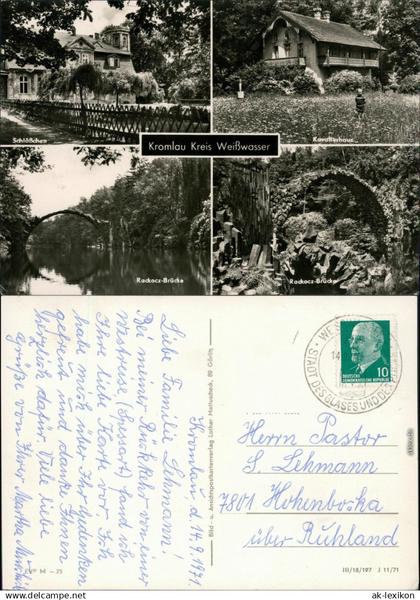 Schlößchen
Kavalierhaus
Kromlau Kreis Weißwasser
Rackocz-Brücke
Rackocz-Brücke
Kromlau d. 14.9.1971
Liebe Familie Lehmann!
Bei meiner Rückkehr von einer
(Spessart) fand ich
Ihre liebe Karte vor. Ich
habe mich über Ihr Gedenken
gefreut und danke Ihnen
herzlich dafür. Viele liebe
Grüße von Ihrer Martha
Bild- u. Ansichtspostkartenverlag Lothar Hartuscheck, 89 Görlitz
STADT DES GLASES UND DER
DEUTSCHE
DEMOKRATISCHE REPUBLIK
10
Herrn Pastor
S. Lehmann
7801 Hohenbocka
über Ruhland
III/18/197 J 11/71
ak-lexikon.com